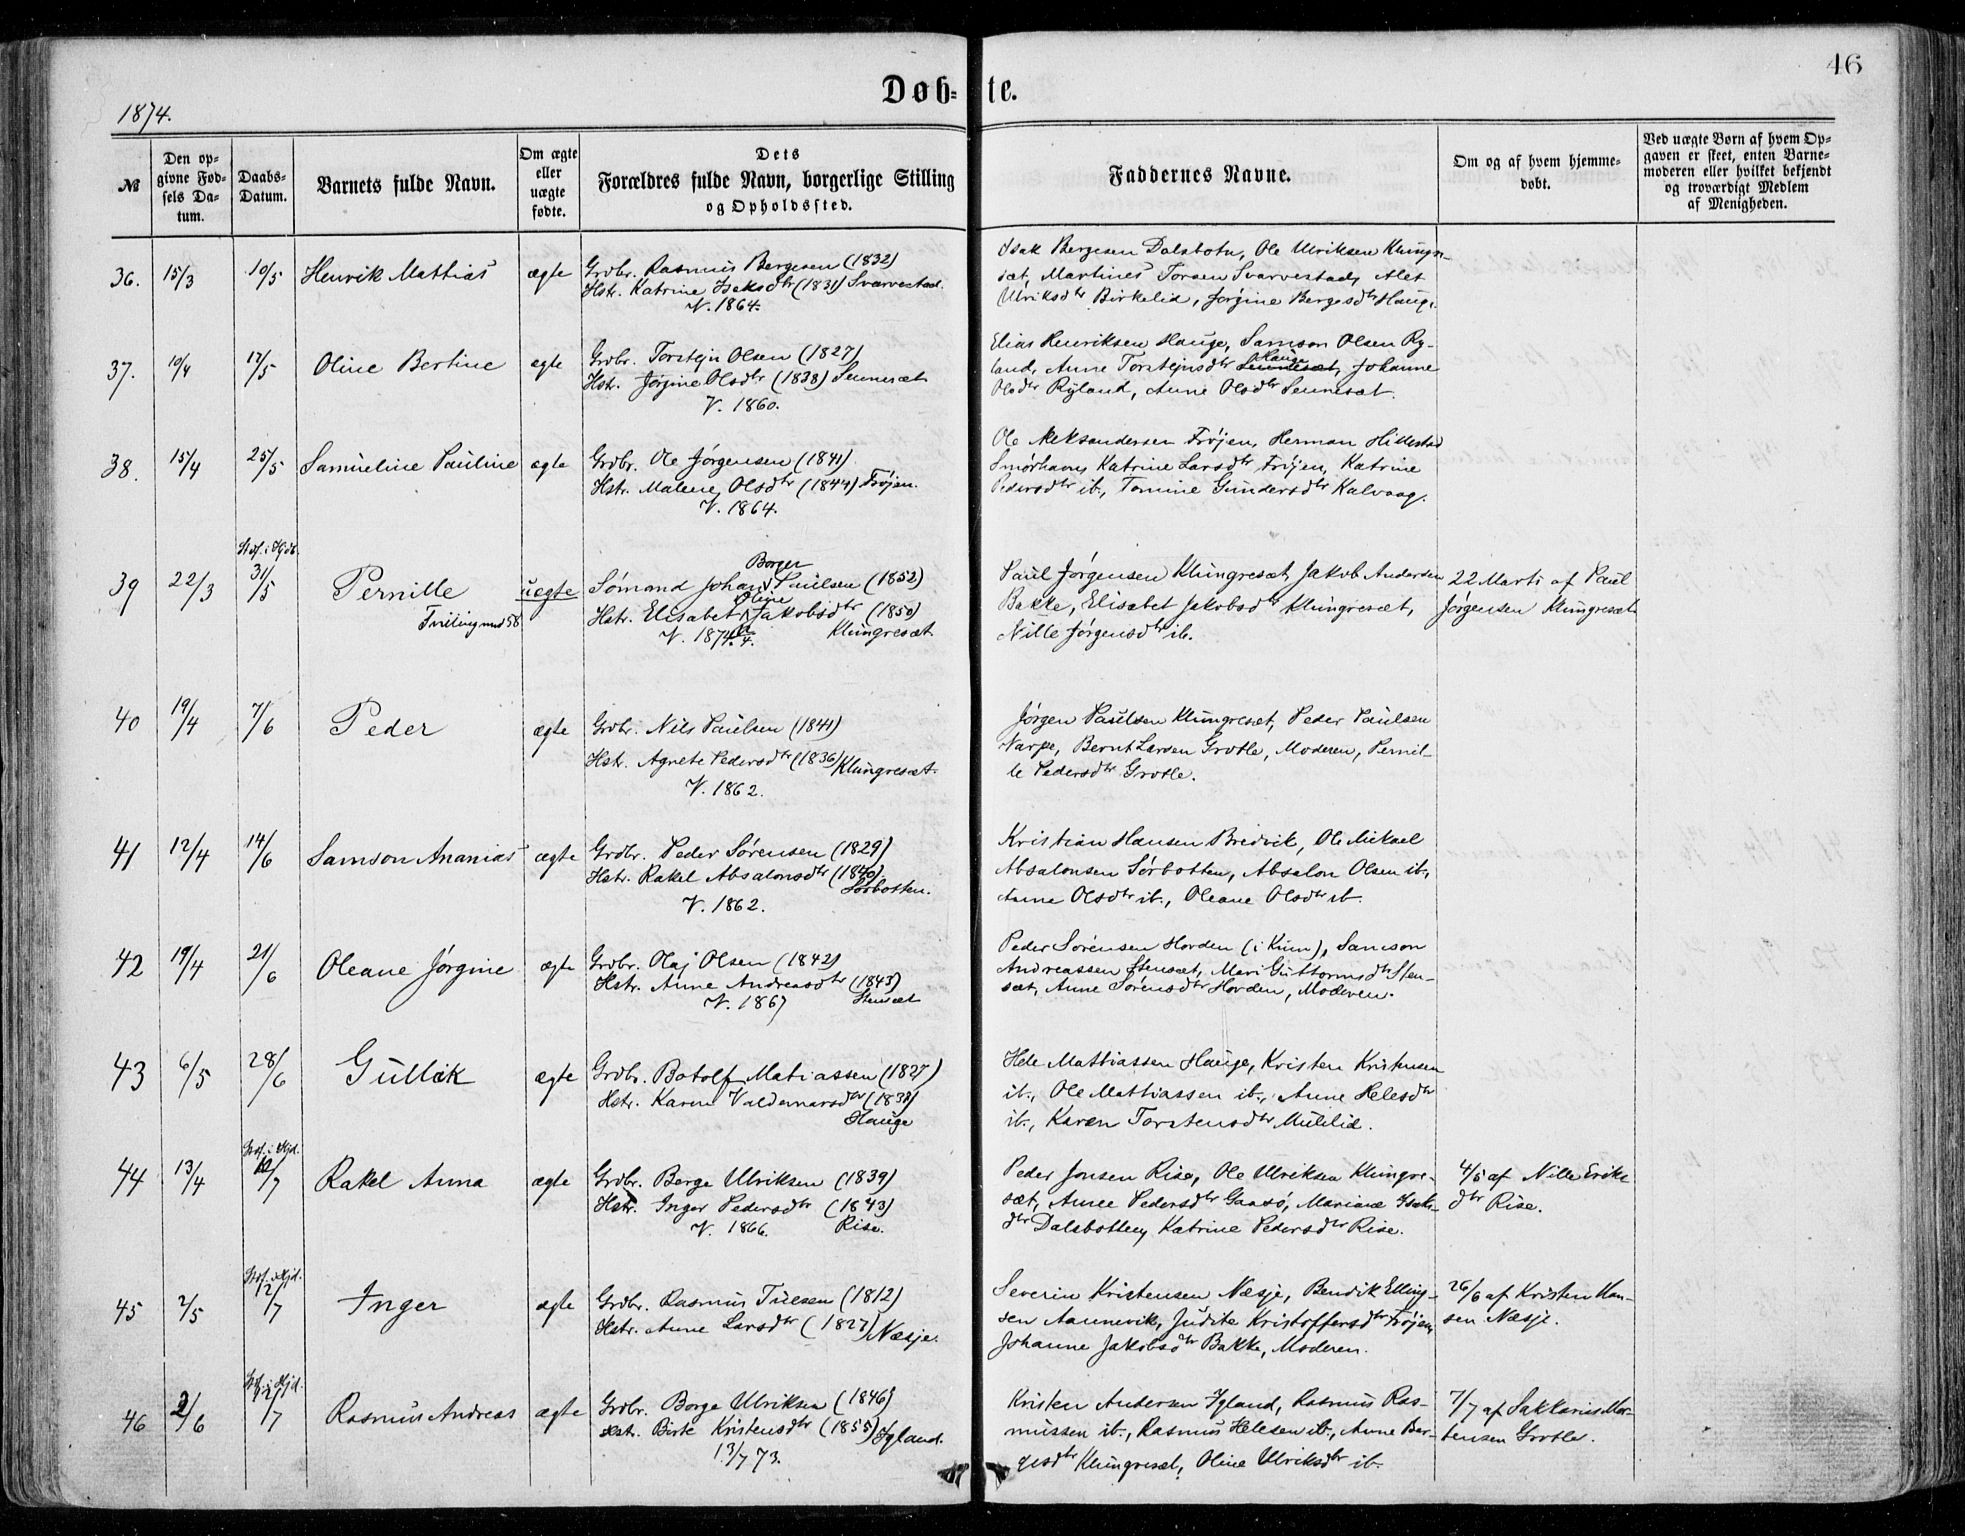 46
Døb-te.
1874.
№
Den op-
givne Fød-
sels Da-
tum.
Daabs-
Datum.
Barnets fulde Navn.
Om ægte
eller
uægte
fødte.
Dets
Forældres fulde Navn, borgerlige Stilling
og Opholdssted.
Faddernes Navne.
Om og af hvem hjemme-
døbt.
Ved uægte Børn af hvem Op-
gaven er skeet, enten Barne-
moderen eller hvilket bekjendt
og troværdigt Medlem
af Menigheden.
36. 15/3 10/5 Henrik Mattias ægte
Grdbr. Rasmus Bergesen (1832)
Hstr. Katrine Isaksdtr (1831) Svarvestad.
V. 1864.
Isak Bergesen Dalsbotn, Ole Ulriksen Klungre-
sæt, Martines Torsen Svarvestad, Alet
Ulriksdtr Birkelid, Jørgine Bergesdtr Hauge.
37. 10/4 17/5 Oline Bertine ægte
Grdbr. Torstejn Olsen (1827)
Hstr. Jørgine Olsdtr (1838) Sennesæt
V. 1860.
Elias Henriksen Hauge, Samson Olsen Ry-
land, Anne Torstejnsdtr Sennesæt Hauge, Johanne
Olsdtr Ryland, Anne Olsdtr Sennesæt.
38. 15/4 25/5 Samueline Pauline ægte
Grdbr. Ole Jørgensen (1841)
Hstr. Malene Olsdtr (1844) Frøjen.
V. 1864.
Ole Aleksandersen Frøjen, Herman Hillestad
Smørhavn, Katrine Larsdtr Frøjen, Katrine
Pedersdtr ib., Tomine Gundersdtr Kalvaag.
39 22/3 Stdf. i Kjdb. 31/5 Pernille uægte
Tvilling med 58
Sømand Johan Borger Paulsen (1852)
Hstr. Elisabet Oline Jakobsdtr (1850)
V. 1874 Klungresæt
Paul Jørgensen Klungresæt, Jakob Andersen
Bakke, Elisabet Jakobsdtr Klungresæt,
Nille Jørgensdtr ib.
22 Marts af Paul
Jørgensen Klungresæt
40 19/4 7/6 Peder ægte
Grdbr. Nils Paulsen (1841)
Hstr. Agnete Pedersdtr (1836) Klungresæt.
V. 1862.
Jørgen Paulsen Klungresæt, Peder Paulsen
Varpe, Bernt Larsen Grotle, Moderen, Pernil-
le Pedersdtr Grotle.
41 12/4 14/6 Samson Ananias ægte
Grdbr. Peder Sørensen (1829)
Hstr. Rakel Absalonsdtr (1840)
Sørbotten.
V. 1862.
Kristian Hansen Bredvik, Ole Mickael
Absalonsen Sørbotten, Absalon Olsen ib.,
Anne Olsdtr ib., Oleane Olsdtr ib.
42 19/4 21/6 Oleane Jørgine ægte
Grdbr. Olaj Olsen (1842)
Hstr. Anne Andreasdtr (1843)
V. 1867 Stensæt
Peder Sørensen Horden (i Kinn), Samson
Andreassen Stensæt, Mari Guttormsdtr Sten-
sæt, Anne Sørensdtr Horden, Moderen.
43 6/5 28/6 Gullik ægte
Grdbr. Botolf Matiassen (1827)
Hstr. Karen Valdemarsdtr (1838)
Hauge
Hele Mattiassen Hauge, Kristen Kristensen
ib., Ole Mattiassen ib., Anne Helesdtr
ib., Karen Torstensdtr Mulelid.
44 13/4 Stdf. i Kjd. 12/7 Rakel Anna ægte
Grdbr. Berge Ulriksen (1839)
Hstr. Inger Pedersdtr (1843)
V. 1866. Rise.
Peder Jonsen Rise, Ole Ulriksen Klungre-
sæt, Anne Pedersdtr Gaasø, Mariane Isaks-
dtr Dalsbotten, Katrine Pedersdtr Rise.
4/5 af Nille Eriks
dtr Rise.
45 2/5 Stdf. i Kjd. 12/7 Inger ægte
Grdbr. Rasmus Tuesen (1812)
Hstr. Anne Larsdtr (1827) Næsje.
Severin Kristensen Næsje, Bendik Elling-
sen Aannevik, Judite Kristoffersdtr Frøjen,
Johanne Jakobsdtr Bakke, Moderen.
26/6 af Kristen Han-
sen Næsje.
46 2/6 Stdf. i Kjd. 12/7 Rasmus Andreas ægte
Grdbr. Borge Ulriksen (1846)
Hstr. Birte Kristensdtr (1855) Igland.
13/7 73.
Kristen Andersen Igland, Rasmus Ras-
mussen ib., Rasmus Helesen ib., Anne Ber-
gesdtr Klungresæt, Oline Ulriksdtr ib.
7/7 af Sakkarias Mor-
tensen Grotle.